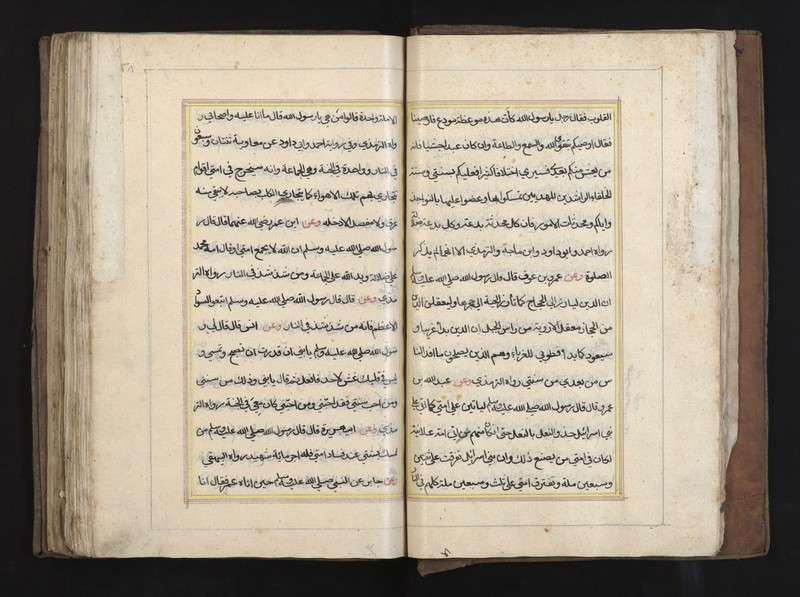 القلوب فقال رجل يا رسول الله كأن هذه موعظة مودع فاوصينا
فقال اوصيكم بتقوى الله والسمع والطاعة وان كان عبدا حبشيا فانه
من يعش منكم بعدى فسيرى اختلافا كثيرا فعليكم بسنتى وسنة
الخلفاء الراشدين المهديين تمسكوا بها وعضوا عليها بالنواجذ
واياكم ومحدثات الامور فان كل محدثة بدعة وكل بدعة ضلالة
رواه احمد وابو داود وابن ماجة والترمذى الا انهما لم يذكرا
الصلوة وعن عمرو بن عوف قال قال رسول الله صلى الله عليه وسلم
ان الدين ليارز الى الحجاز كما تأرز الحية الى جحرها وليعقلن الدين
من الحجاز معقل الاروية من راس الجبل ان الدين بدا غريبا و
سيعود كما بدا فطوبى للغرباء وهم الذين يصلحون ما افسد النا
س من بعدى من سنتى رواه الترمذى وعن عبد الله بن
عمرو قال قال رسول الله صلى الله عليه وسلم لياتين على امتى كما اتى على
بنى اسرائيل حذو النعل بالنعل حتى ان كان منهم من اتى امه علانية
لكان فى امتى من يصنع ذلك وان بنى اسرائيل تفرقت على ثنتين
وسبعين ملة وتفترق امتى على ثلث وسبعين ملة كلهم فى النار
الا ملة واحدة قالوا من هى يا رسول الله قال ما انا عليه واصحابى ر
واه الترمذى وفى رواية احمد وابى داود عن معاوية ثنتان وسبعون
فى النار وواحدة فى الجنة وهى الجماعة وانه سيخرج فى امتى اقوام
تتجارى بهم تلك الاهواء كما يتجارى الكلب بصاحبه لا يبقى منه
عرق ولا مفصل الا دخله وعن ابن عمر رضى الله عنهما قال قال ر
سول الله صلى الله عليه وسلم ان الله لا يجمع امتى او قال امة محمد
على ضلالة ويد الله على الجماعة ومن شذ شذ فى النار رواه التر
مذى وعن قال قال رسول الله صلى الله عليه وسلم اتبعوا السواد
الاعظم فانه من شذ شذ فى النار وعن انس قال قال لى ر
سول الله صلى الله عليه وسلم يا بنى ان قدرت ان تصبح وتمسى و
ليس فى قلبك غش لاحد فافعل ثم قال يا بنى وذلك من سنتى
ومن احب سنتى فقد احبنى ومن احبنى كان معى فى الجنة رواه التر
مذى وعن ابى هريرة قال قال رسول الله صلى الله عليه وسلم من
تمسك بسنتى عند فساد امتى فله اجر مائة شهيد رواه البيهقى
وعن جابر عن النبى صلى الله عليه وسلم حين اتاه عمر فقال انا